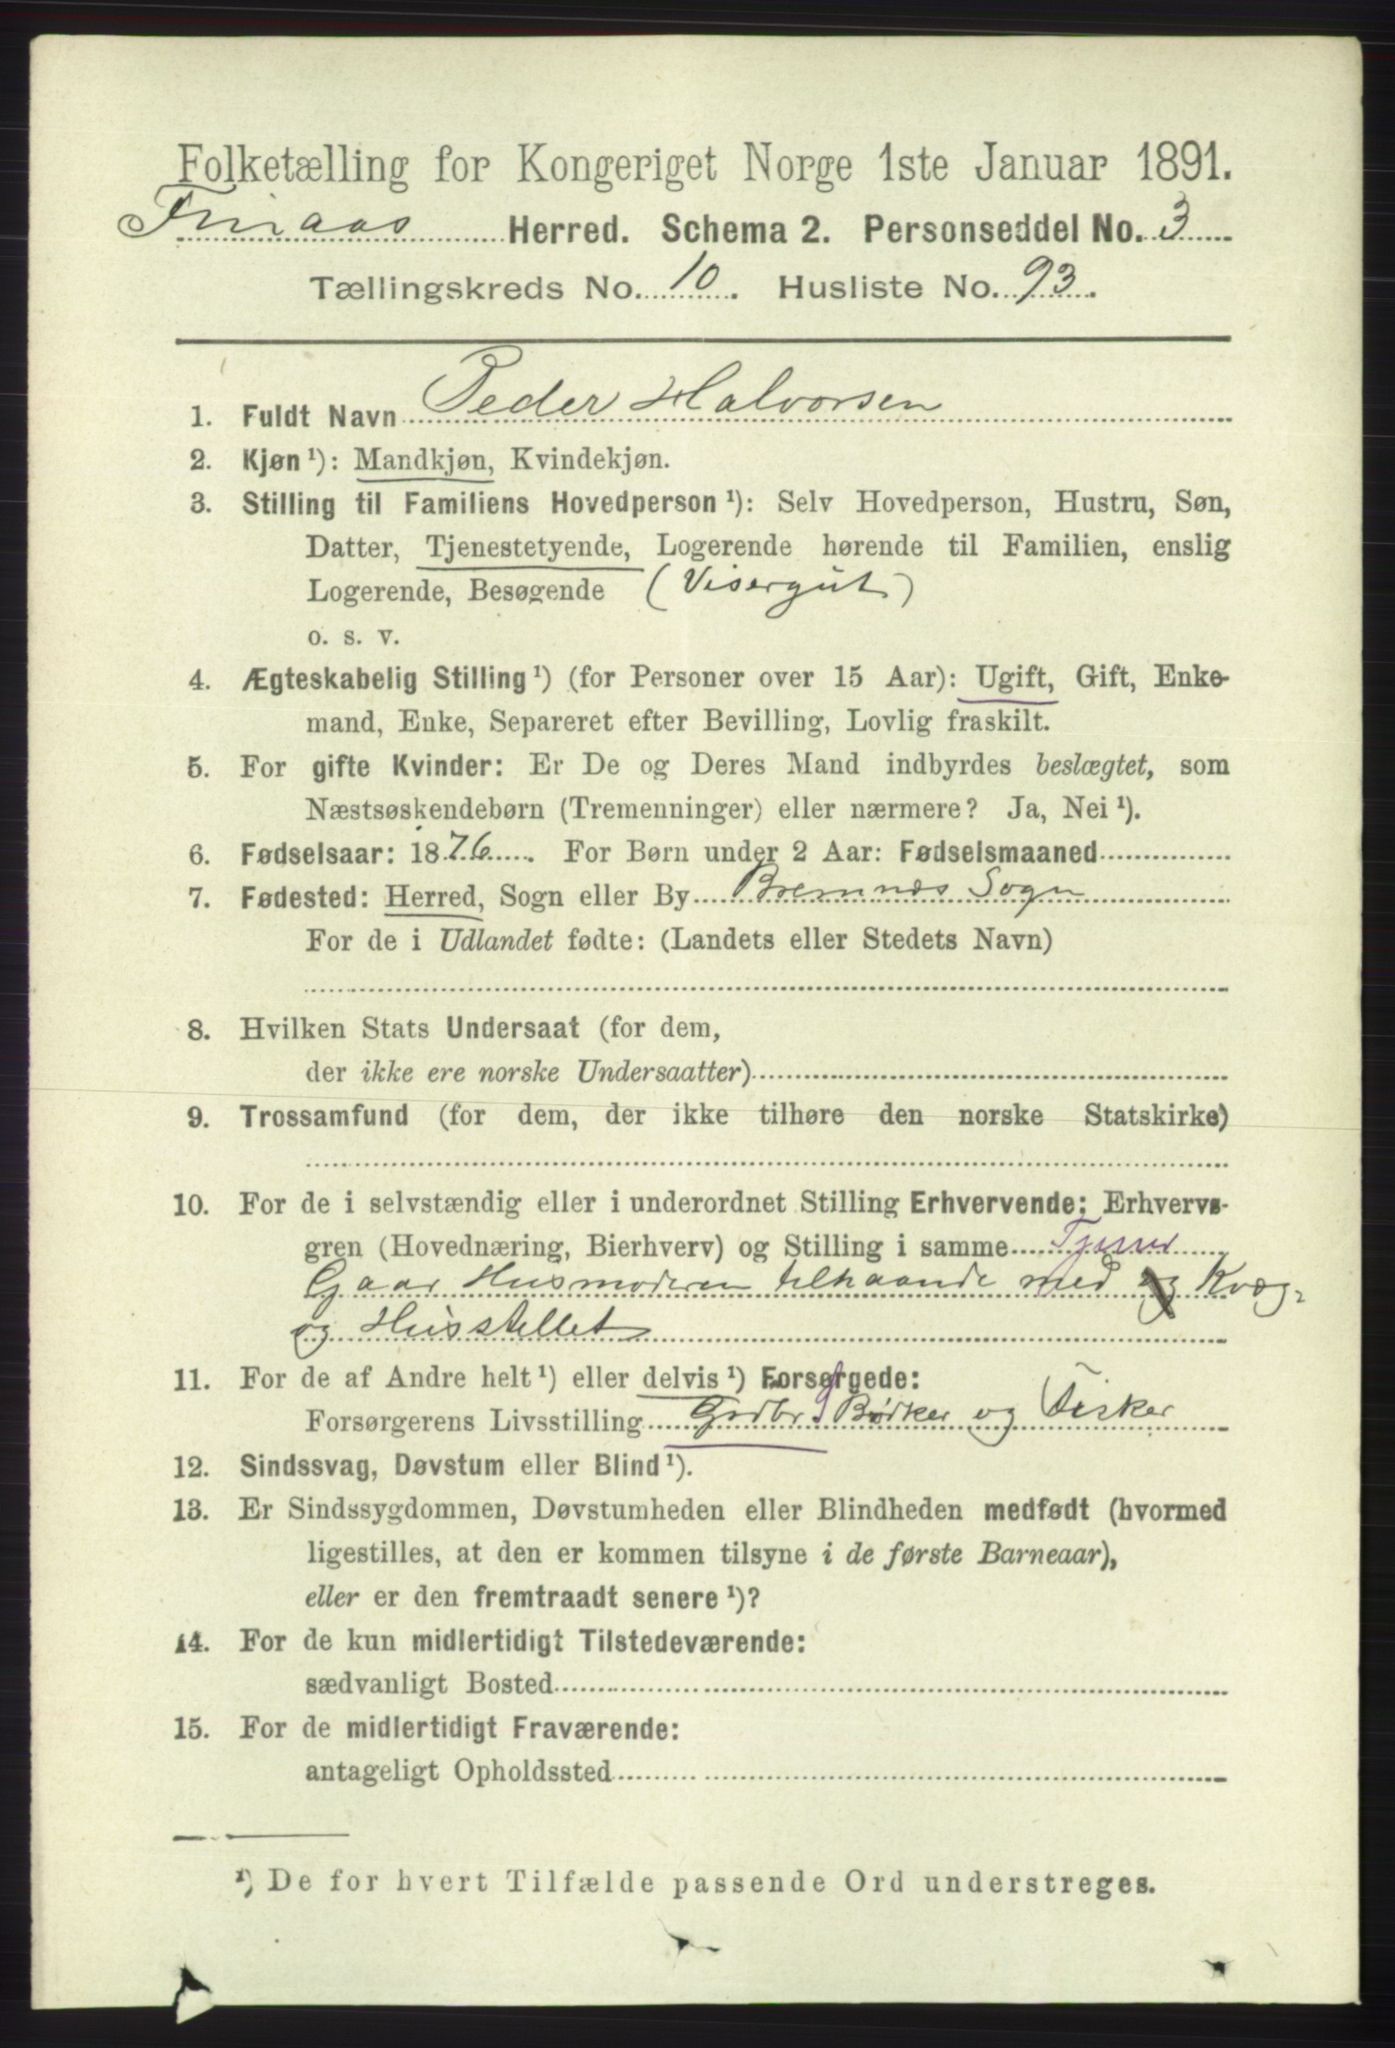 Folketælling for Kongeriget Norge 1ste Januar 1891.
Finaas Herred. Schema 2. Personseddel No. 3
Tællingskreds No. 10. Husliste No. 93.
1. Fuldt Navn Peder Halvorsen
2. Kjøn ¹): Mandkjøn, Kvindekjøn.
3. Stilling til Familiens Hovedperson ¹): Selv Hovedperson, Hustru, Søn,
Datter, Tjenestetyende, Logerende hørende til Familien, enslig
Logerende, Besøgende (Visergut)
o. s. v.
4. Ægteskabelig Stilling ¹) (for Personer over 15 Aar): Ugift, Gift, Enke-
mand, Enke, Separeret efter Bevilling, Lovlig fraskilt.
5. For gifte Kvinder: Er De og Deres Mand indbyrdes beslægtet, som
Næstsøskendebørn (Tremenninger) eller nærmere? Ja, Nei ¹).
6. Fødselsaar: 1876. For Børn under 2 Aar: Fødselsmaaned
7. Fødested: Herred, Sogn eller By Bremnæs Sogn
For de i Udlandet fødte: (Landets eller Stedets Navn)
8. Hvilken Stats Undersaat (for dem,
der ikke ere norske Undersaatter)
9. Trossamfund (for dem, der ikke tilhøre den norske Statskirke)
10. For de i selvstændig eller i underordnet Stilling Erhvervende: Erhvervs-
gren (Hovednæring, Bierhverv) og Stilling i samme Tjener
Gaar Husmoderen tilhaande med og Kvæg-
og Husstellet
11. For de af Andre helt ¹) eller delvis ¹) Forsørgede:
Forsørgerens Livsstilling Grdbr S Bødker og Fisker
12. Sindssvag, Døvstum eller Blind ¹).
13. Er Sindssygdommen, Døvstumheden eller Blindheden medfødt (hvormed
ligestilles, at den er kommen tilsyne i de første Barneaar),
eller er den fremtraadt senere ¹)?
14. For de kun midlertidigt Tilstedeværende:
sædvanligt Bosted
15. For de midlertidigt Fraværende:
antageligt Opholdssted
¹) De for hvert Tilfælde passende Ord understreges.